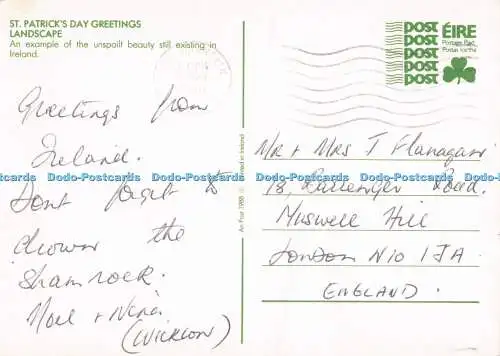 ST. PATRICK'S DAY GREETINGS
LANDSCAPE
An example of the unspoilt beauty still existing in
Ireland.
Greetings from
Ireland.
Dont forget to
drown the
Shamrock.
Noel + Nena
(WICKLOW)
An Post 1988 © Printed in Ireland
POST ÉIRE
POST Postage Paid
POST Postas Íoctha
POST
POST
Mr + Mrs J Flanagan
18, Road.
Muswell Hill
London N10 1JA
ENGLAND.
Postcards Dodo-Postcards Dodo-Postcards Dodo-Postcards Dodo-Postcards